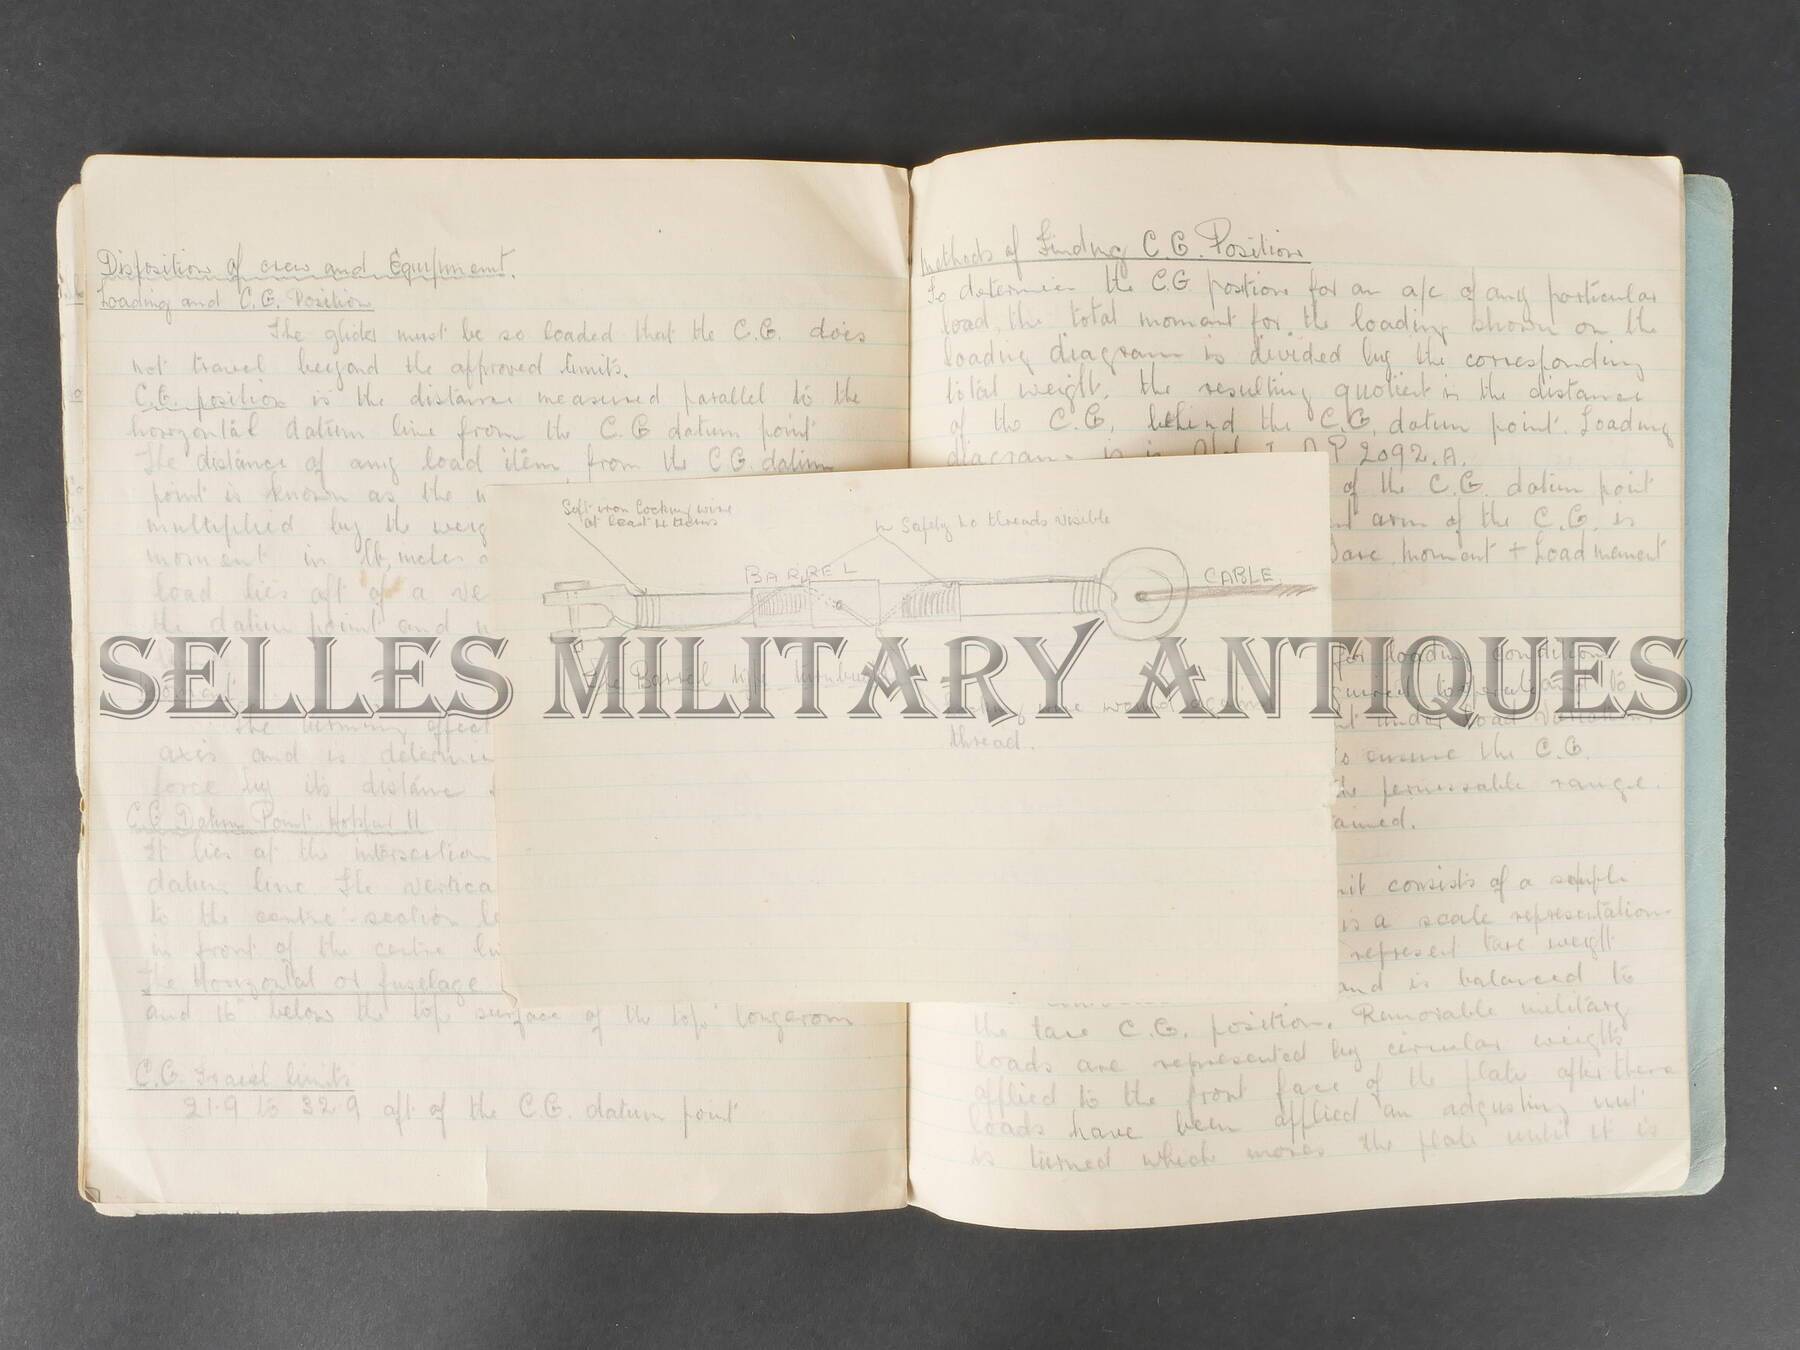 Disposition of crew and Equipment.
Loading and C.G. Position
The glider must be so loaded that the C.G. does
not travel beyond the approved limits.
C.G. position is the distance measured parallel to the
horizontal datum line from the C.G datum point
The distance of any load item from the C.G. datum
point is known as the
multiplied by the
moment in lb, meles
load lies aft of a
the datum point and
The turning effect
axis and is
force by its distance
C.G Datum Point Hotspur II
It lies at the intersection
datum line The
to the centre-section
in front of the centre
The Horizontal or fuselage
and 16" below the top surface of the top longeron
C.G. Travel limits
21.9 to 32.9 aft of the C.G. datum point
Soft iron locking wire
at least 4 turns
in Safety no threads visible
BARREL
CABLE
The Barrel type
locking wire wound against
thread.
Methods of Finding C.G. Position
To determin the C.G postion for an a/c of any particular
load, the total moment for the loading shown on the
loading diagram is divided by the corresponding
total weight, the resulting quotient is the distance
of the C.G. behind the C.G. datum point. Loading
diagram is in A.P 2092.A.
of the C.G. datum point
arm of the C.G. is
Tare moment + Load mement
for loading condition
under load
to ensure the C.G.
the permissable range.
consists of a
is a scale representation
represent tare weight
and is balanced to
the tare C.G. position. Removable military
loads are represented by circular weights
applied to the front face of the plate after these
loads have been applied an adjusting nut
is turned which moves the plate until it is
SELLES MILITARY ANTIQUES